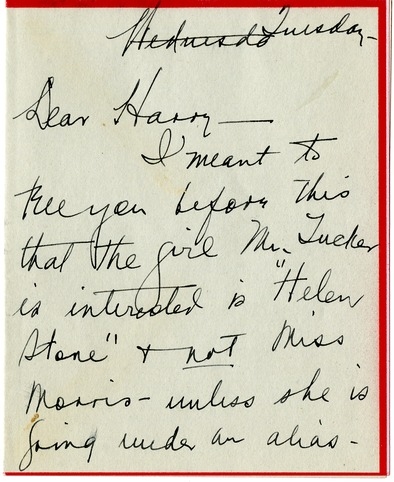 Wednesda Tuesday-
Dear Harry —
I meant to
tell you before this
that the girl Mr. Tucker
is interested is "Helen
Stone" & not Miss
Morris - unless she is
going under an alias -